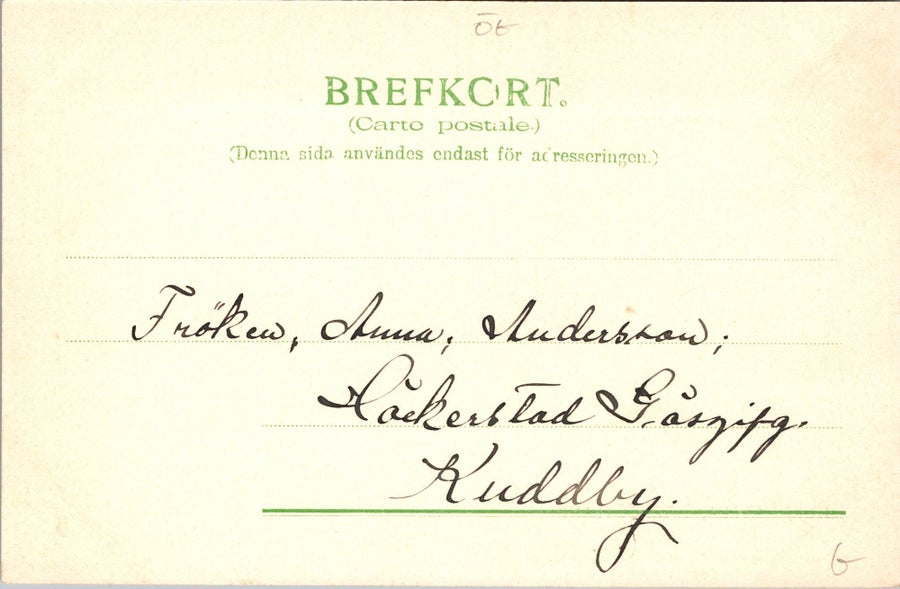 ÖG
BREFKORT.
(Carte postale.)
(Denna sida användes endast för adresseringen.)
Fröken, Anna, Andersson,
Häckerstad Gäsgifg.
Kuddby.
G